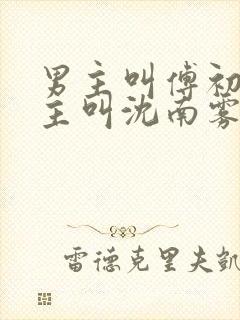 男主叫傅初
主叫沈南雾
雷德克里夫凯